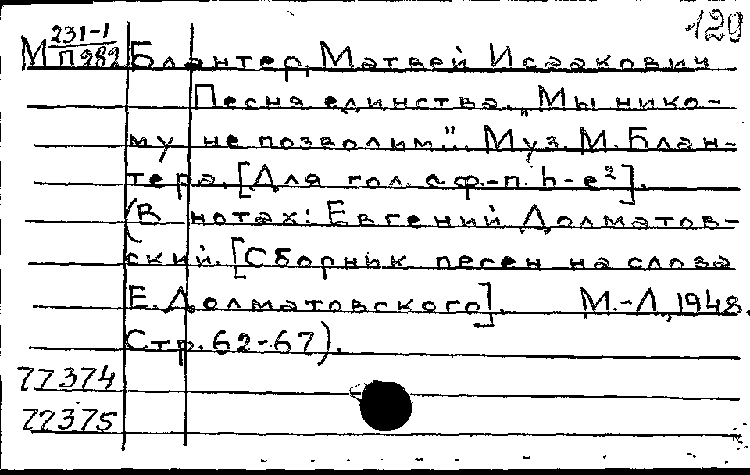 129
М 231-1/П282 Блантер, Матвей Исаакович
Песня единства. „Мы нико-
му не позволим". Муз. М. Блан-
тера. [Для гол. с ф.-п. h-e²].
(В нотах: Евгений Долматов-
ский. [Сборник песен на слова
Е. Долматовского]. М.-Л., 1948.
Стр. 62-67).
77374
77375